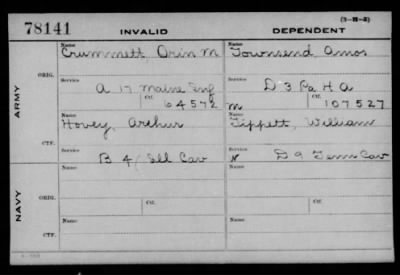 (3-M-3)
78141 INVALID DEPENDENT
Name Name
Crummett, Orin M Townsend, Amos
ARMY
ORIG.
Service Service
A 17 Maine Inf D 3 Pa H A
Ctf. Ctf.
64572 m 107527
Name Name
Hovey, Arthur Tippett, William
CTF.
Service Service
B 4 Ill Cav N D 9 Tenn Cav
NAVY
ORIG.
Name Ctf. Name Ctf.
CTF.
Name Name